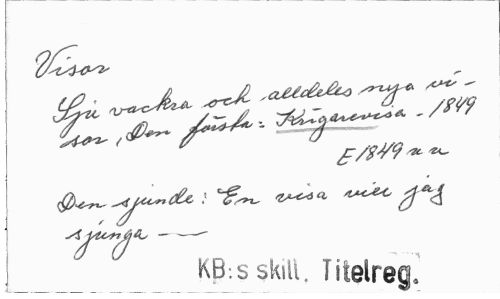 Visor
Sju vackra och alldeles nya vi-
sor, Den första: Krigarevisa - 1849
E 1849 u u
Den sjunde: En visa vill jag
sjunga —
KB:s skill. Titelreg.